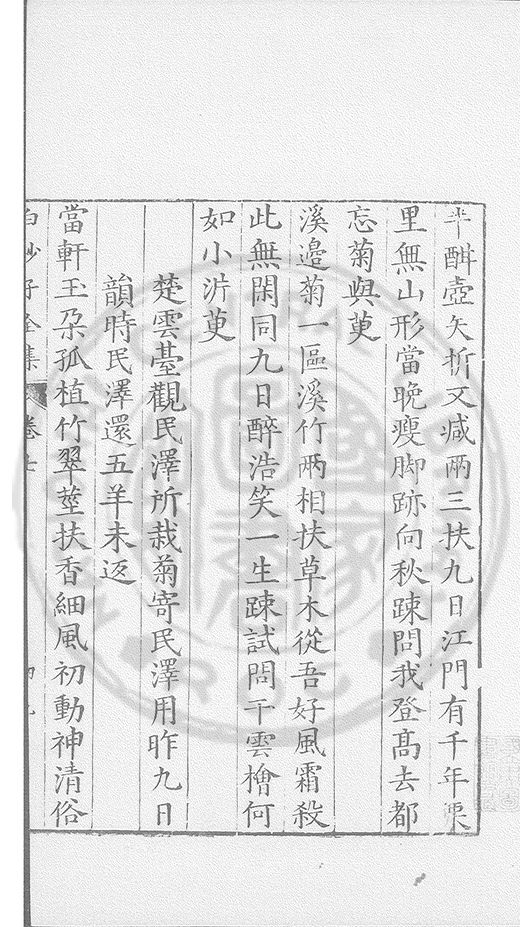 半酣壺矢折又減兩三扶九日江門有千年栗
里無山形當晚瘦脚跡向秋踈問我登高去都
忘菊與萸
溪邊菊一區溪竹兩相扶草木從吾好風霜殺
此無閑同九日醉浩笑一生踈試問干雲檜何
如小泲萸
楚雲臺觀民澤所栽菊寄民澤用昨九日
韻時民澤還五羊未返
當軒玉朶孤植竹翠莖扶香細風初動神清俗
白沙子全集 卷七